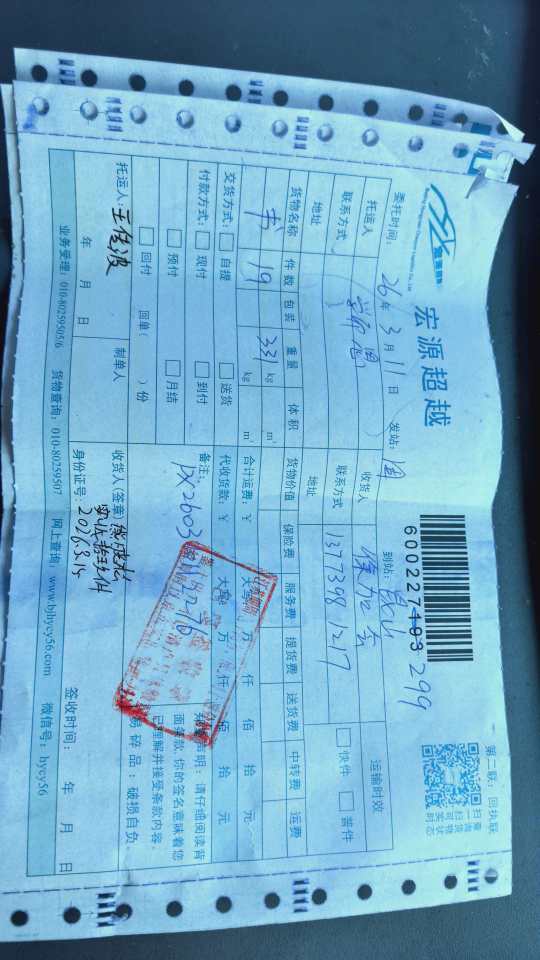 宏源超越
600227493 299
第二联：回执联
委托时间：26年3月11日 发站： 到站：昆山
托运人 收货人 运输时效
联系方式 联系方式 13773981217 快件 普件
地址 地址
货物名称 件数 包装 重量 体积 货物价值 保险费 服务费 提货费 送货费 中转费 运费
书 19 331 kg m³
kg m³
合计运费：¥ 大写 万 仟 佰 拾 元
交货方式： 自提 送货 代收货款：¥ 大写 万 仟 佰 拾 元
付款方式： 现付 到付 备注：
预付 月结
回付 回单（ ）份
声明：请仔细阅读背
面条款，你的签名意味着您
已理解并接受条款内容。
易碎品：破损自负。
托运人：王俊波 制单人 收货人(签章)
年 月 日 身份证号：2026.3.15 签收时间： 年 月 日
业务受理：010-80259505/6 货物查询：010-80259507 网上查询：www.bjhycy56.com 微信号：hycy56